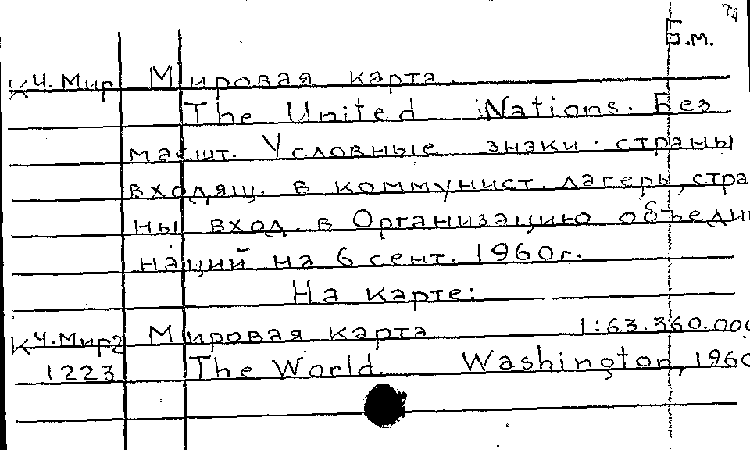 Б.М.
КЧ.Мир Мировая карта.
The United Nations. Без
масшт. Условные знаки. страны
входящ. в коммунист. лагерь, стра
ны вход. в Организацию объедин
наций на 6 сент. 1960г.
На карте:
КЧ.Мир2 Мировая карта 1:63.360.000
1223 The World. Washington, 1960